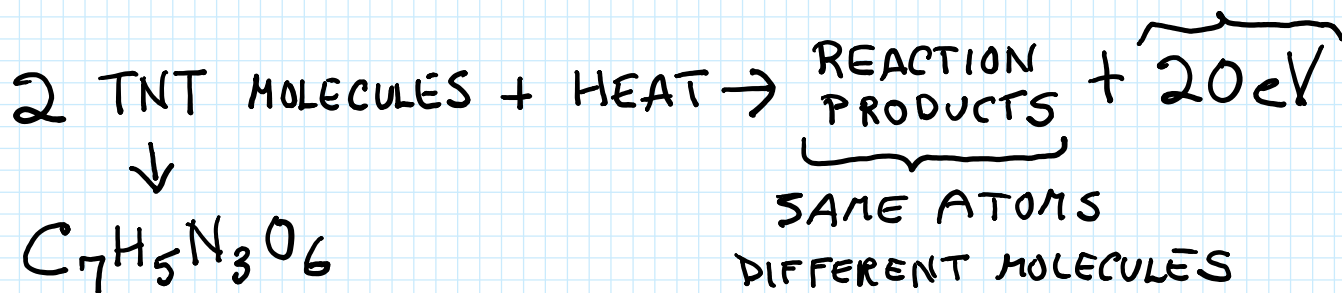 2 TNT MOLECULES + HEAT → REACTION PRODUCTS + 20eV
↓
C₇H₅N₃O₆
SAME ATOMS
DIFFERENT MOLECULES